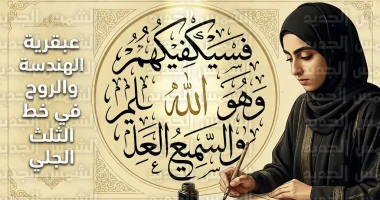 عبقرية
الهندسة
والروح
في خط
الثلث
الجلي
فسيكفيكهم
وهو الله ليم
والسميع العل